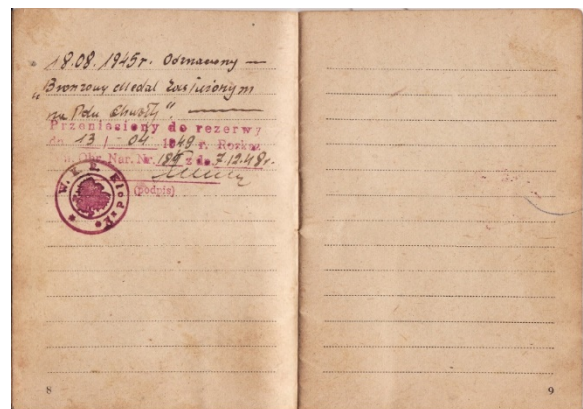 18.08.1945r. Odznaczony —
„Bronzowy Medal Zasłużonym
na Polu Chwały". —
Przeniesiony do rezerwy
dn. 13 - 04 1949 r. Rozkaz
Ob. Nar. Nr. 184 z dn. 7.12.48r.
(podpis)
W. K. R. Kłodzko
8
9